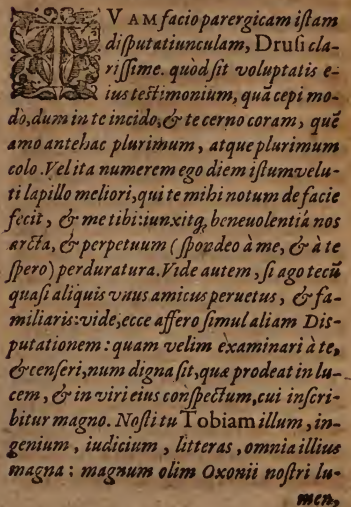 TVAM facio parergicam iſtam
diſputatiunculam, Druſi cla-
riſſime. quòd ſit voluptatis e-
ius teſtimonium, quã cepi mo-
dò, dum in te incido, & te cerno coram, quẽ
amo antehac plurimum, atque plurimum
colo. Vel ita numerem ego diem iſtum velu-
ti lapillo meliori, qui te mihi notum de facie
fecit, & me tibi: iunxitq; beneuolentiâ nos
arcta, & perpetuum (ſpondeo à me, & à te
ſpero) perduratura. Vide autem, ſi ago tecũ
quaſi aliquis vnus amicus peruetus, & fa-
miliaris: vide, ecce affero ſimul aliam Diſ-
putationem: quam velim examinari à te,
& cenſeri, num digna ſit, quæ prodeat in lu-
cem, & in viri eius conſpectum, cui inſcri-
bitur magno. Noſti tu Tobiam illum, in-
genium, iudicium, litteras, omnia illius
magna: magnum olim Oxonii noſtri lu-
men,